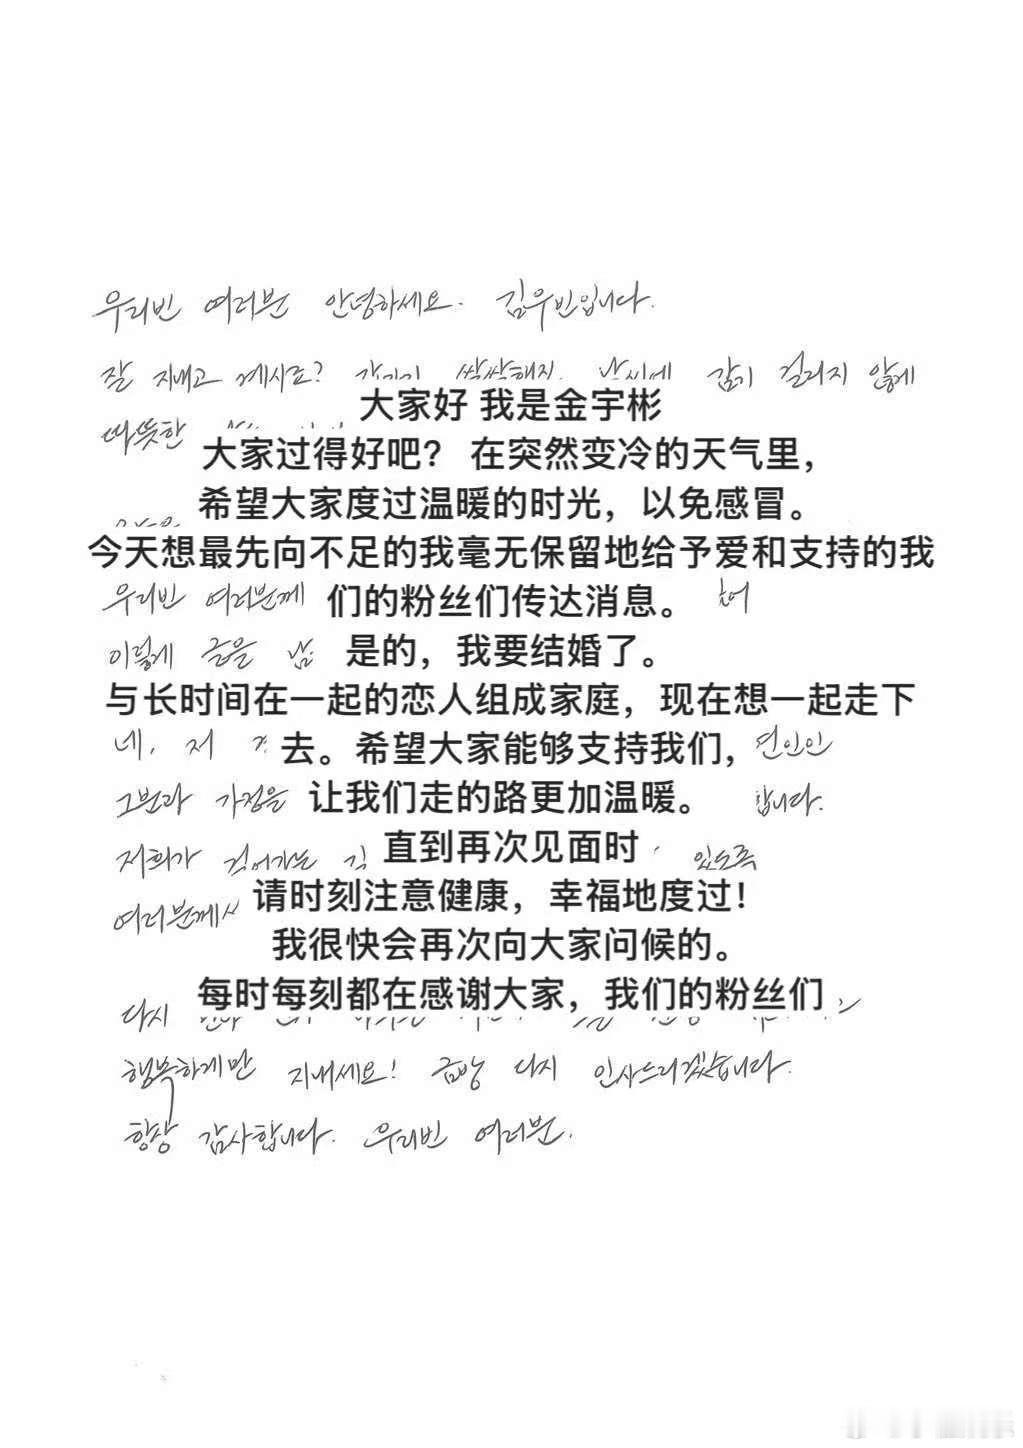 우리빈 여러분 안녕하세요. 김우빈입니다.
잘 지내고 계시죠? 감기 걸리지 않게
大家好 我是金宇彬
따뜻한
大家过得好吧？ 在突然变冷的天气里，
希望大家度过温暖的时光，以免感冒。
今天想最先向不足的我毫无保留地给予爱和支持的我
우리빈 여러분께 们的粉丝们传达消息。
이렇게 글을 是的，我要结婚了。
与长时间在一起的恋人组成家庭，现在想一起走下
네, 저 去。希望大家能够支持我们， 연인인
그분과 가정을 让我们走的路更加温暖。 합니다.
저희가 걸어가는 直到再次见面时 있도록
여러분께서 请时刻注意健康，幸福地度过！
我很快会再次向大家问候的。
每时每刻都在感谢大家，我们的粉丝们
다시
행복하게만 지내세요! 금방 다시 인사드리겠습니다.
항상 감사합니다. 우리빈 여러분.